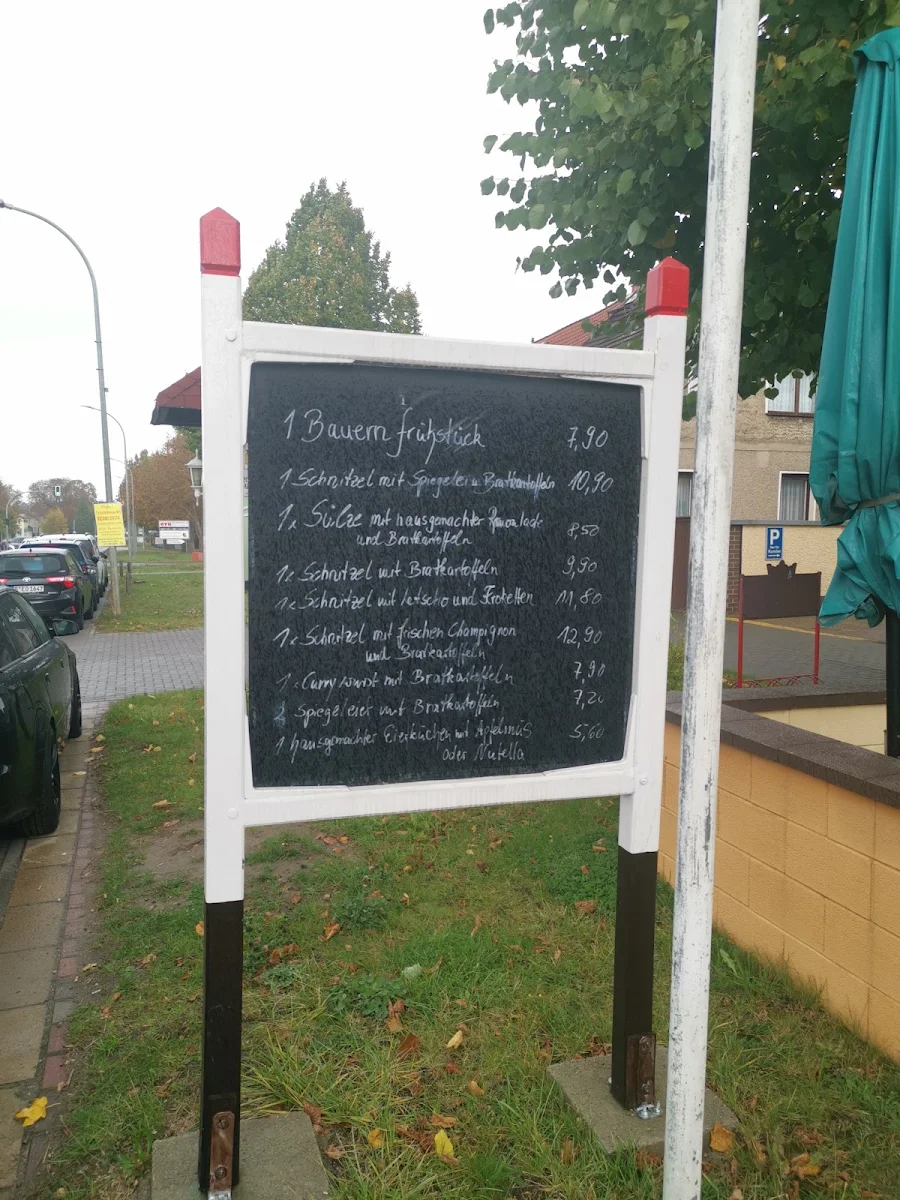 1 Bauernfrühstück 7,90
1 Schnitzel mit Spiegelei u. Bratkartoffeln 10,90
1x Sülze mit hausgemachter Remoulade
und Bratkartoffeln 8,50
1x Schnitzel mit Bratkartoffeln 9,90
1x Schnitzel mit Letscho und Kroketten 11,80
1x Schnitzel mit frischen Champignon 12,90
und Bratkartoffeln
1x Currywurst mit Bratkartoffeln 7,90
2 Spiegeleier mit Bratkartoffeln 7,20
1 hausgemachter Eierkuchen mit Apfelmus 5,60
oder Nutella
P